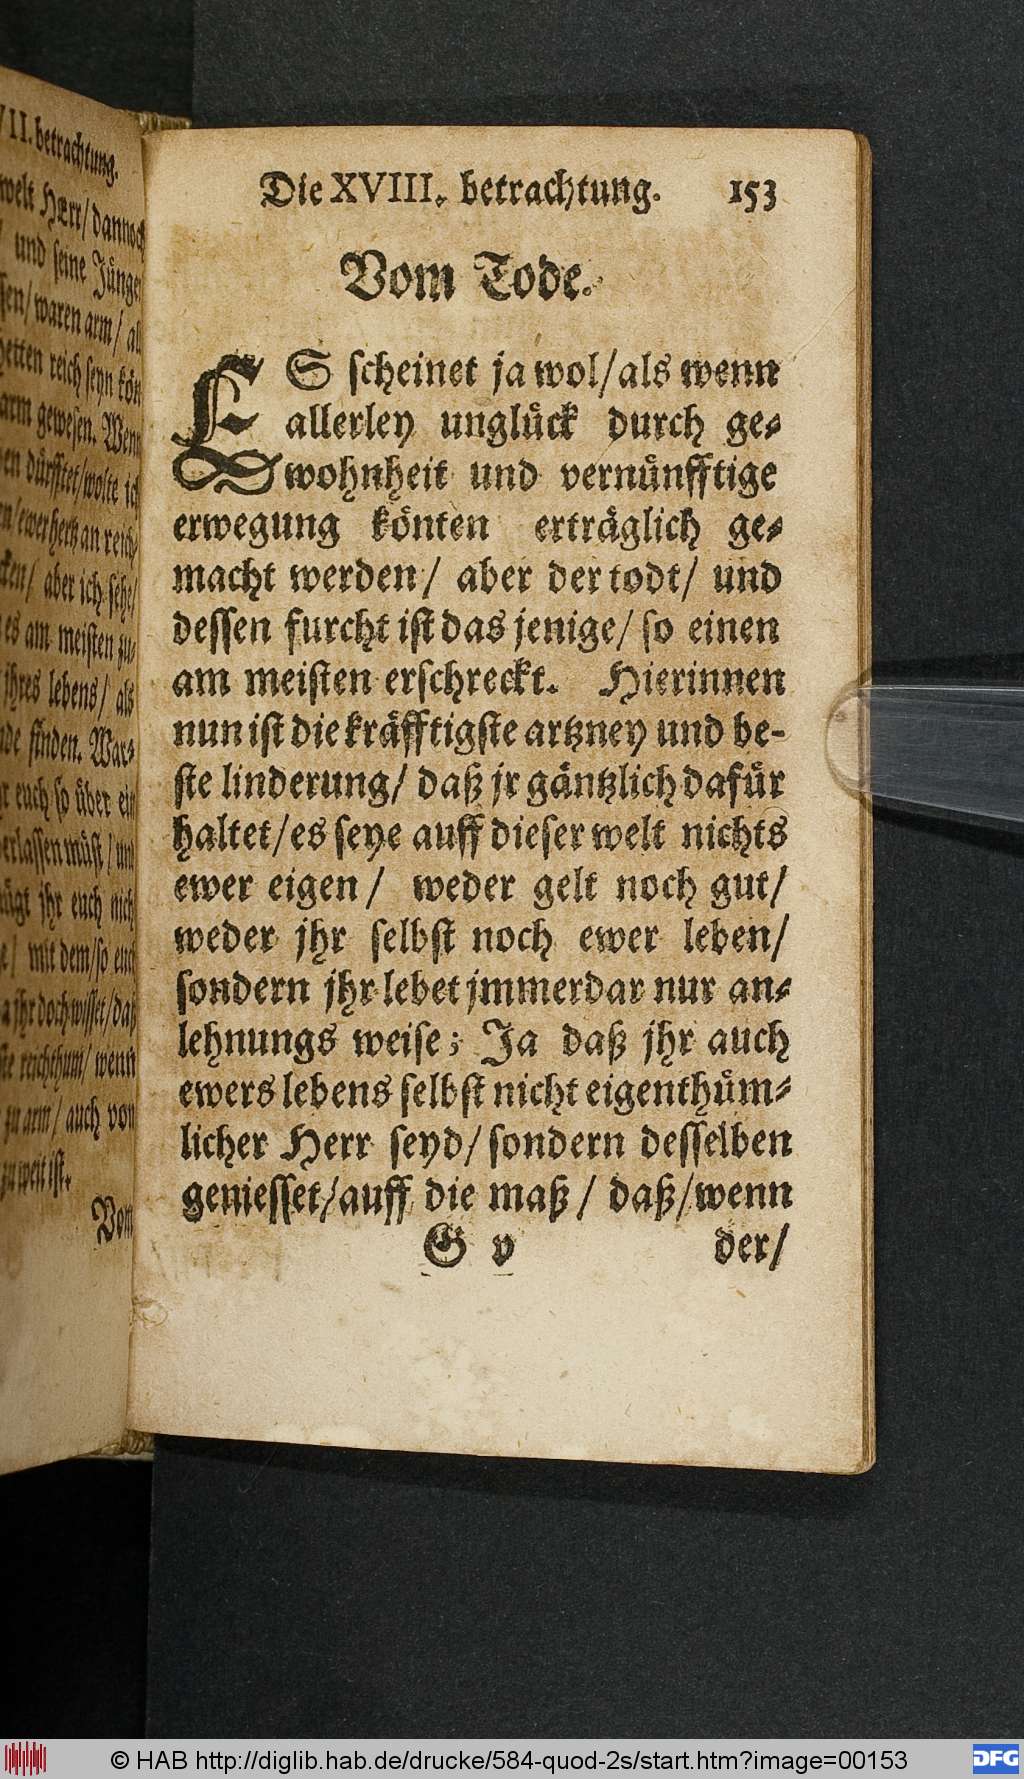 VII. betrachtung.
welt HErr/ dannoch
und seine Jünger
waren arm/
reich seyn
arm gewesen. Wenn
dürfftet/ wolte ich
ewer hertz an reich-
aber ich sehe/
es am meisten zu-
jhres lebens/ als
finden. War-
euch so über ein
und
jhr euch nicht
mit dem/ so euch
jhr doch wisset/ daß
reichthum/ wenn
zu arm/ auch von
zu weit ist.
Vom
Die XVIII. betrachtung. 153
Vom Tode.
ES scheinet ja wol/ als wenn
allerley unglück durch ge-
wohnheit und vernünfftige
erwegung könten erträglich ge-
macht werden/ aber der todt/ und
dessen furcht ist das jenige/ so einen
am meisten erschreckt. Hierinnen
nun ist die kräfftigste artzney und be-
ste linderung/ daß jr gäntzlich dafür
haltet/ es seye auff dieser welt nichts
ewer eigen/ weder gelt noch gut/
weder jhr selbst noch ewer leben/
sondern jhr lebet jmmerdar nur an-
lehnungs weise; Ja daß jhr auch
ewers lebens selbst nicht eigenthüm-
licher Herr seyd/ sondern desselben
geniesset/ auff die maß/ daß/ wenn
G v der/
© HAB http://diglib.hab.de/drucke/584-quod-2s/start.htm?image=00153
DFG